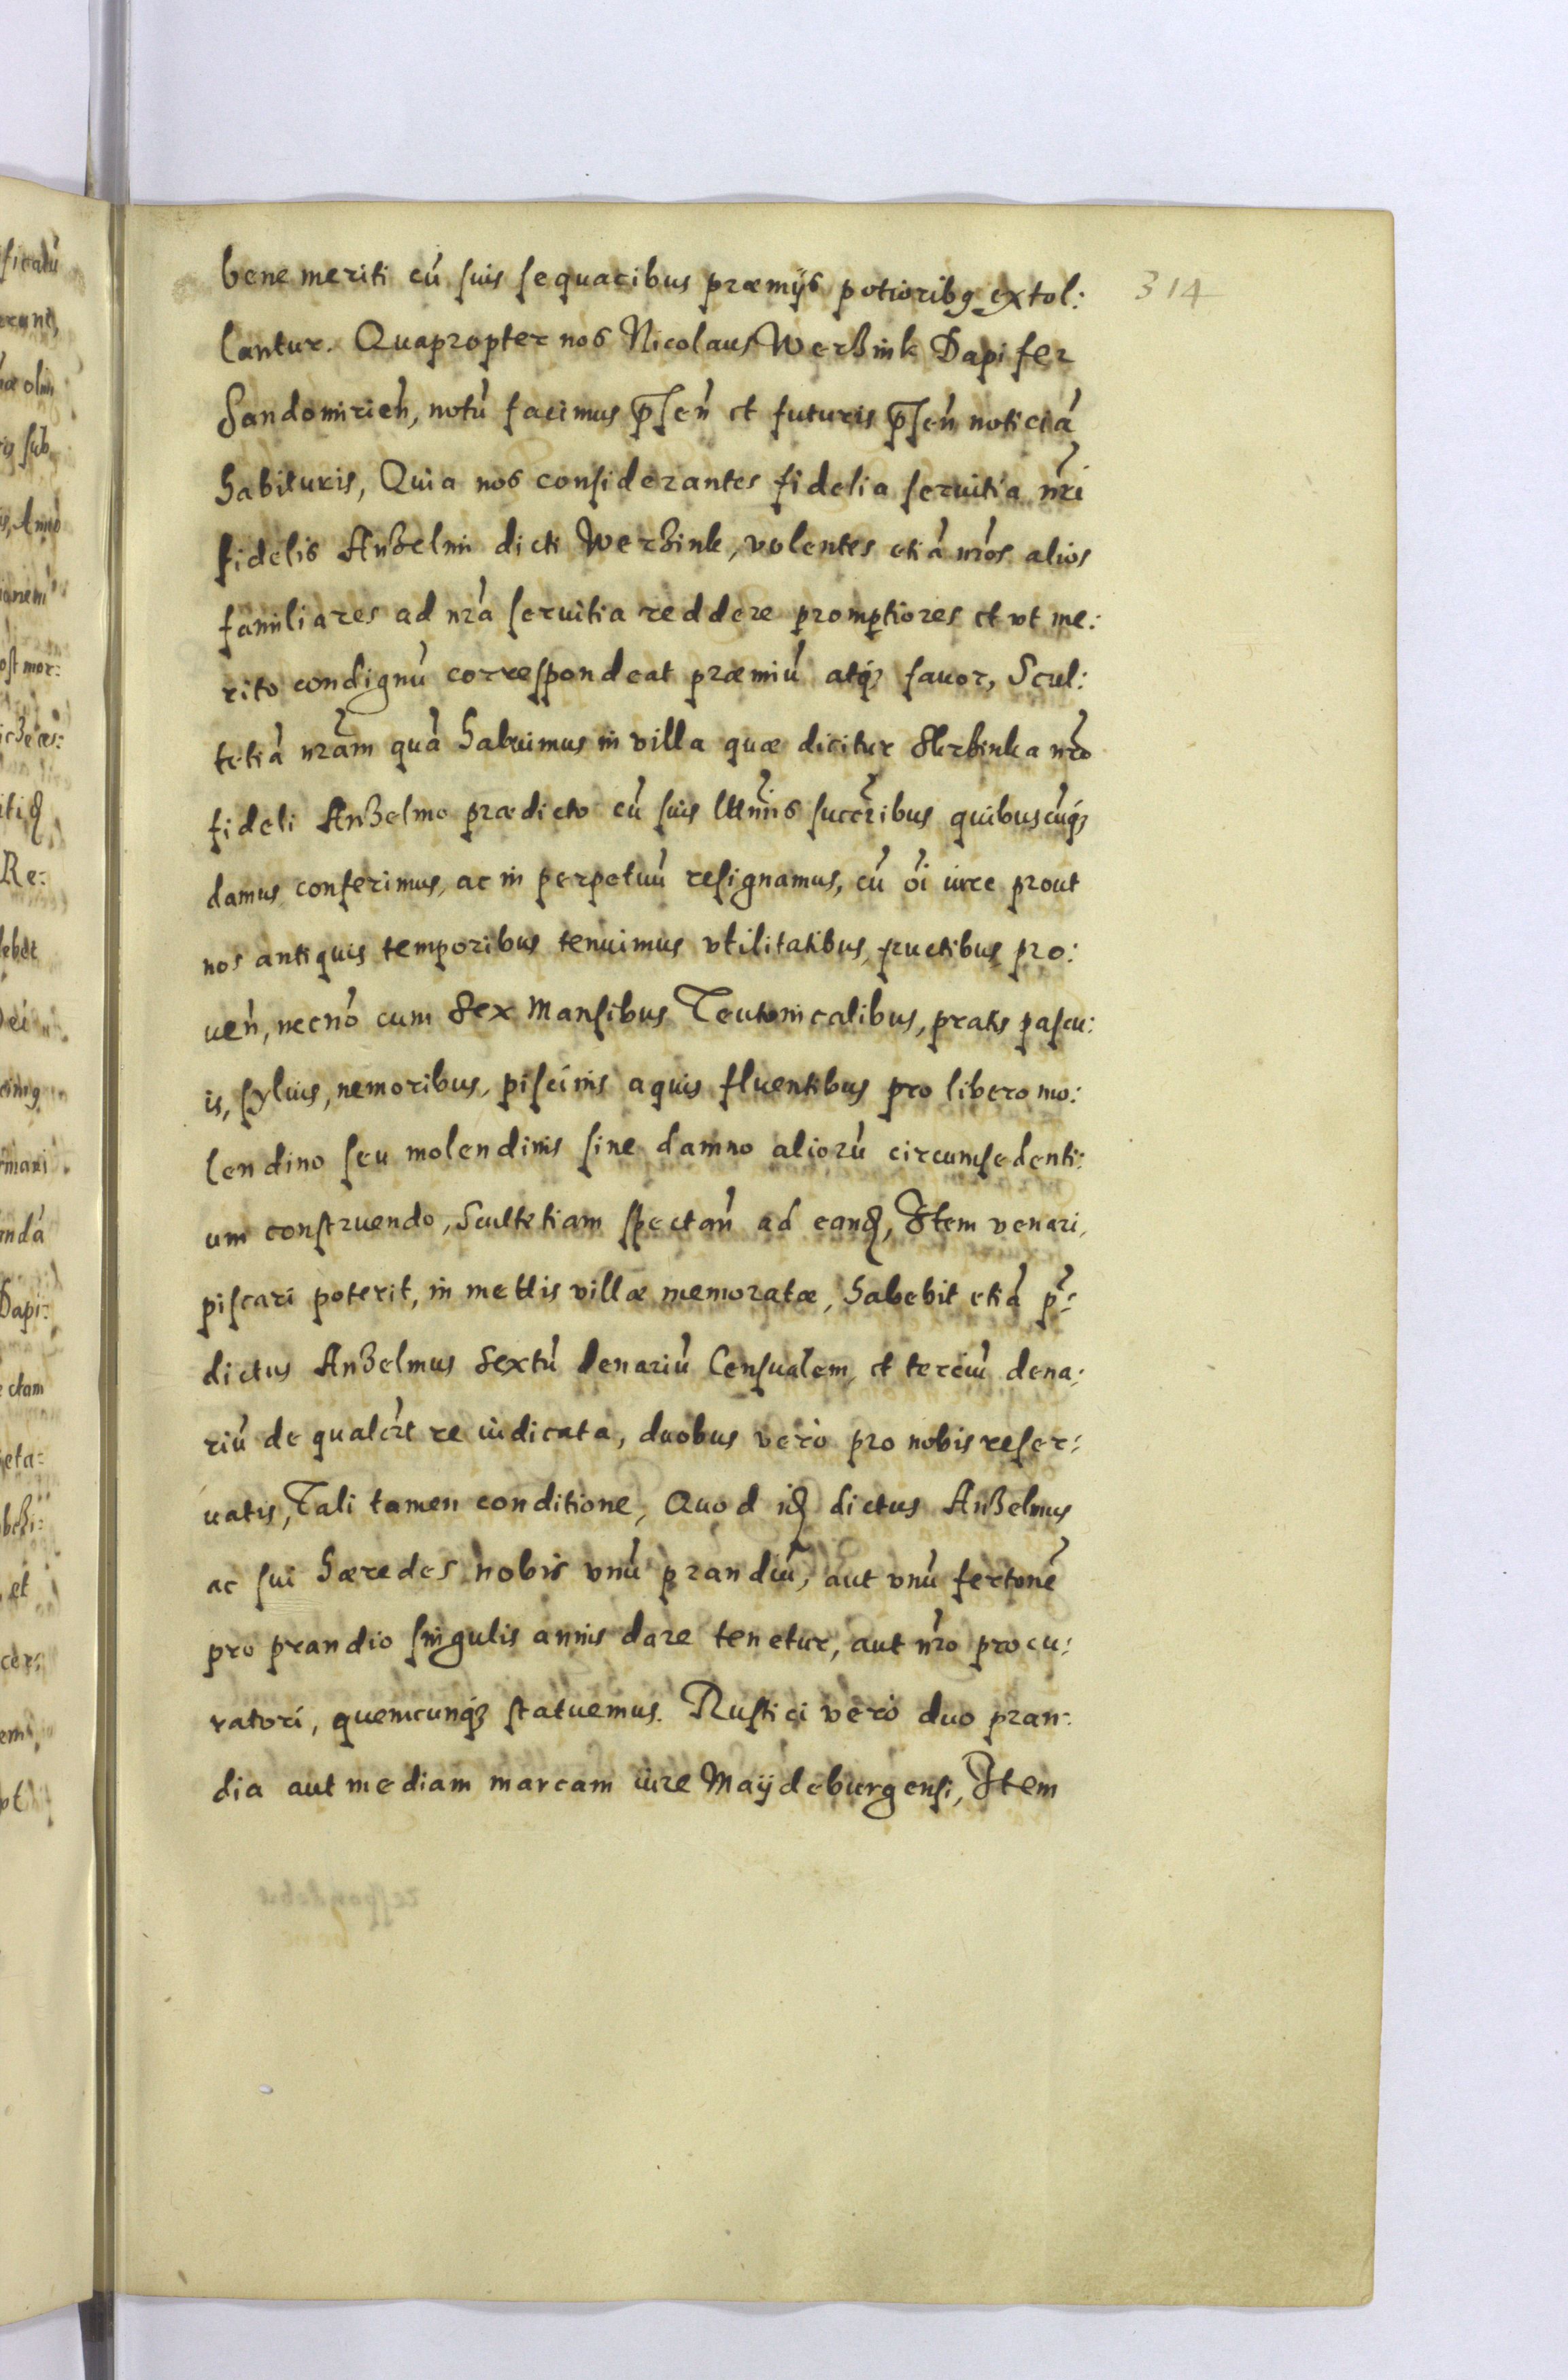 bene meriti cũ suis sequacibus præmijs potioribꝰ extol:
lantur. Quapropter nos Nicolaus Werbink Dapifer
Sandomirieñ, notũ facimus p̃señ et futuris p̃señ noticiã
habituris, Quia nos considerantes fidelia seruitia nr̃i
fidelis Anzelmi dicti Werbink, volentes etiã nr̃os alios
familiares ad nr̃a seruitia reddere promptiores et vt me:
rito condignũ correspondeat præmiũ atqꝫ fauor, Scul:
tetiã nr̃am quã habuimus in villa quæ dicitur nr̃o
fideli Anzelmo prædicto cũ suis ltt̃imis succr̃ibus quibuscũqꝫ
damus conferimus, ac in perpetuũ resignamus, cũ õi iure prout
nos antiquis temporibus tenuimus vtilitatibus, fructibus pro:
ueñ, necnõ cum Sex Mansibus Teutonicalibus, pratis pascu:
is, syluis, nemoribus, piscinis aquis fluentibus pro libero mo:
lendino seu molendinis sine damno aliorũ circumsedenti:
um construendo, Scultetiam spectañ ad eandꝫ, Item venari,
piscari poterit, in mettis villæ memoratæ, habebit etiã p̃:
dictus Anzelmus Sextũ denariũ Censualem, et terciũ dena:
riũ de qualr̃t re iudicata, duobus verò pro nobis reser:
uatis, Tali tamen conditione, Quod idꝫ dictus Anzelmus
ac sui hæredes nobis vnũ prandiũ, aut vnũ fertonẽ
pro prandio singulis annis dare tenetur, aut nr̃o procu:
ratori, quemcunqꝫ statuemus. Rustici verò duo pran:
dia aut mediam marcam iure Maijdeburgensi, Item
314